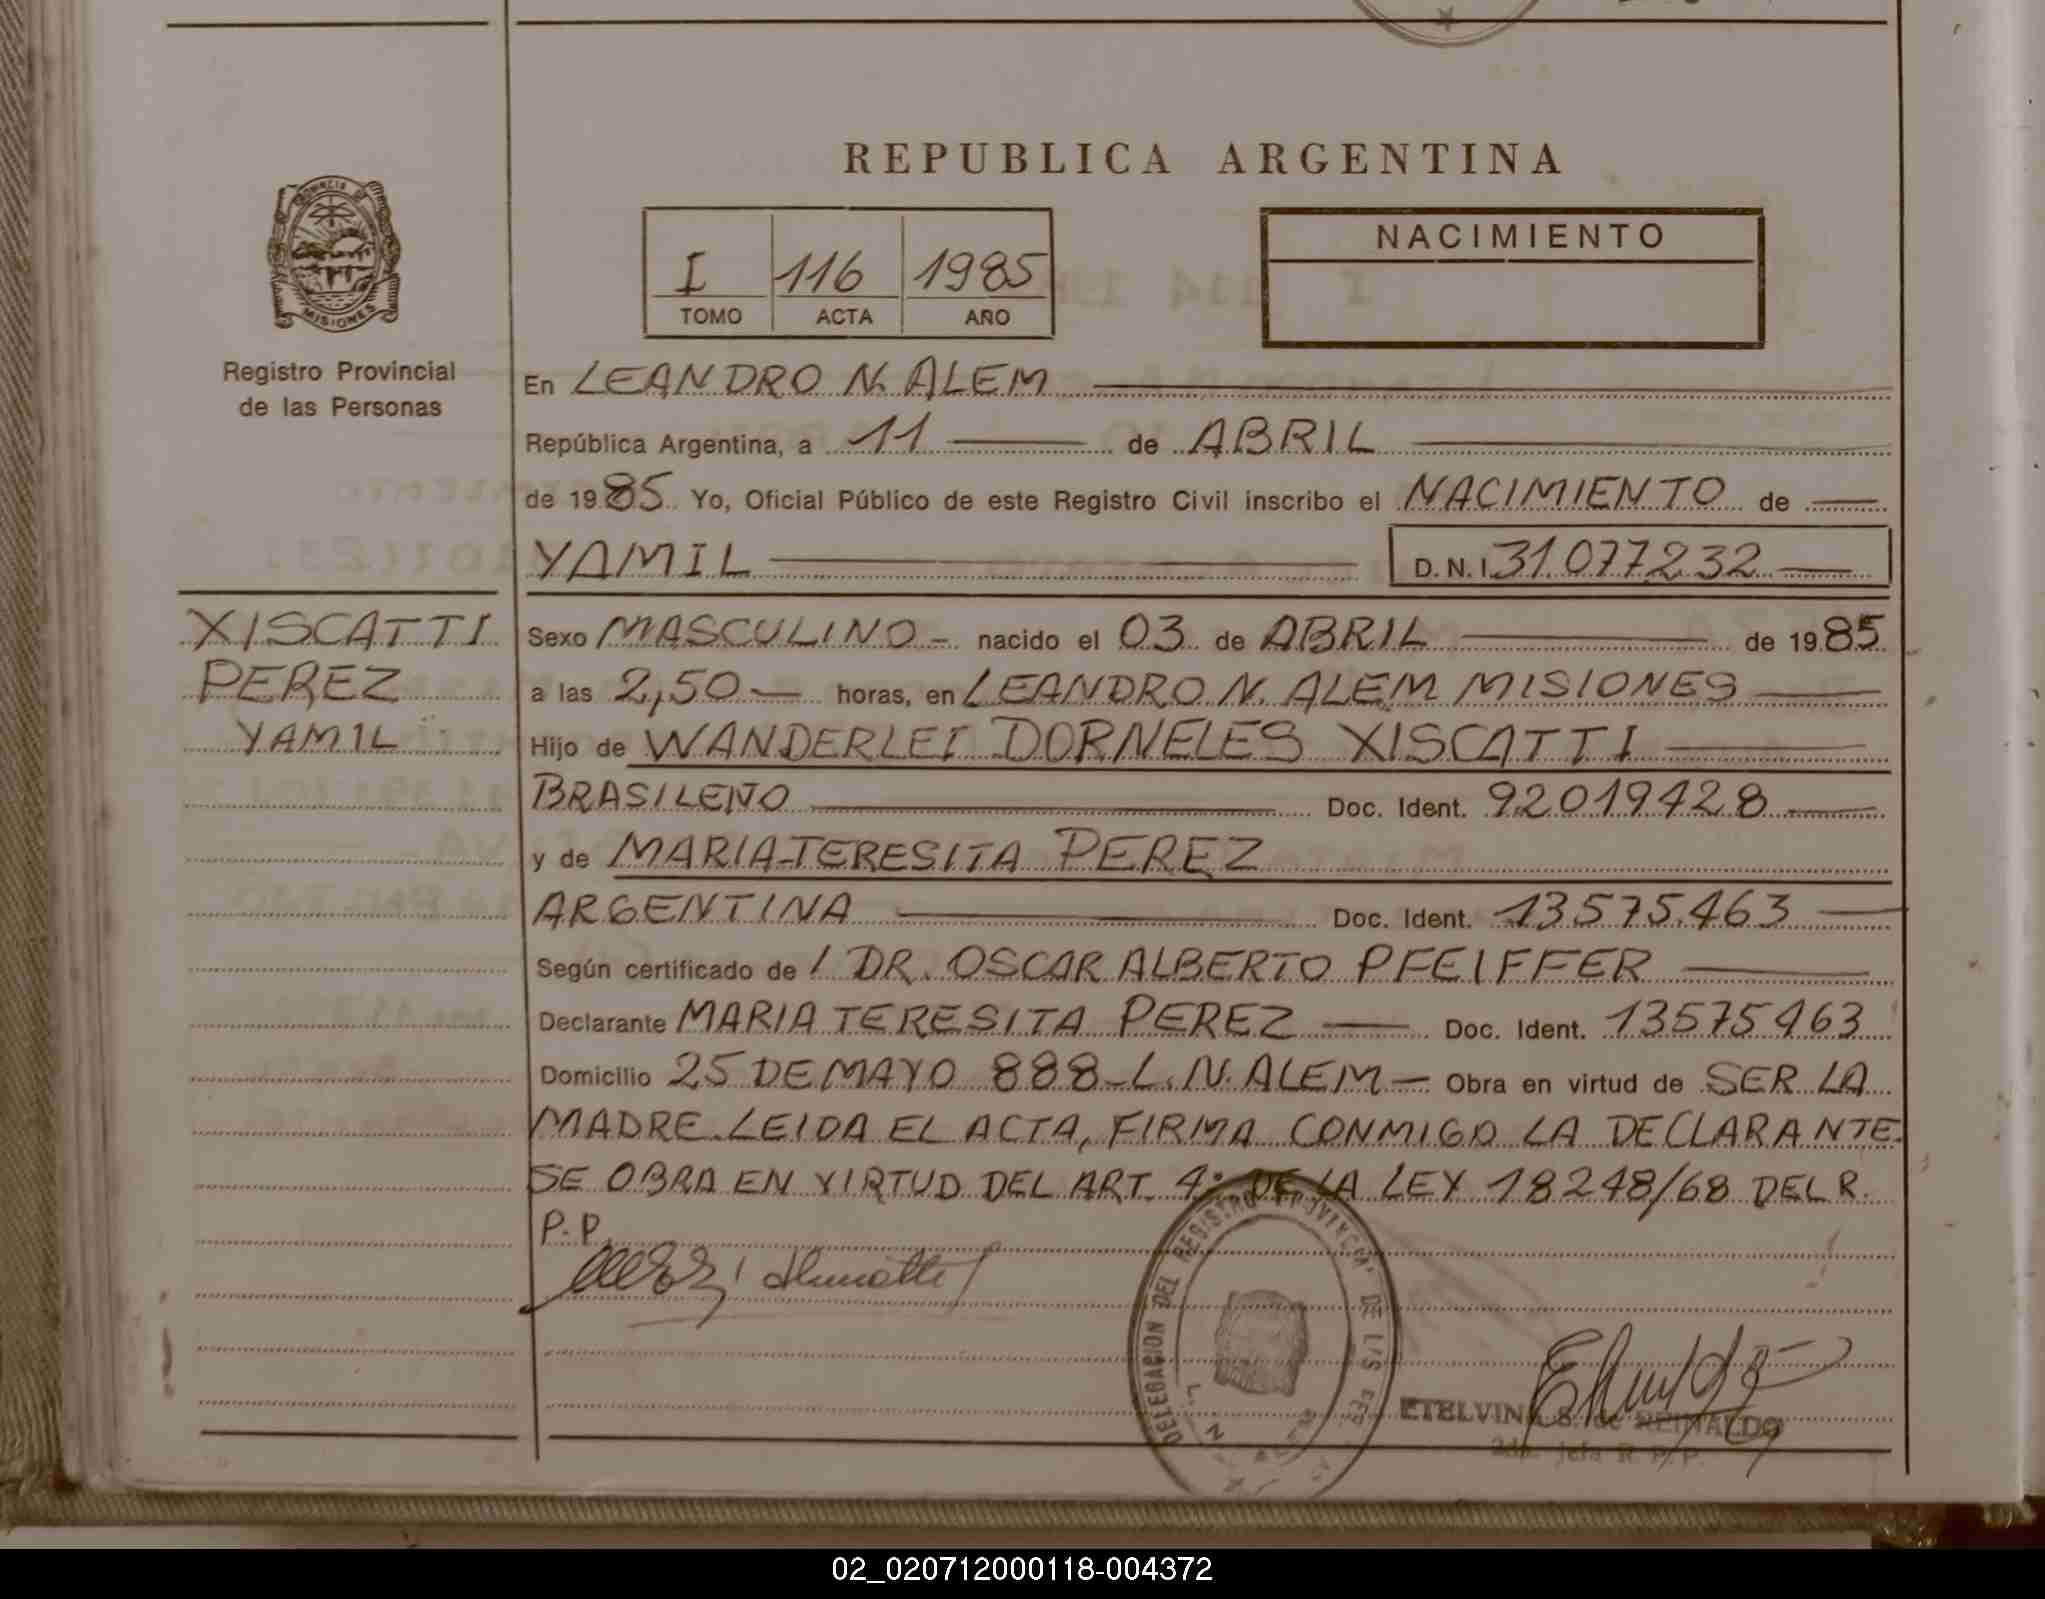 REPUBLICA ARGENTINA
PROVINCIA DE
MISIONES
Registro Provincial
de las Personas
I 116 1985
TOMO ACTA AÑO
NACIMIENTO
En LEANDRO N. ALEM
República Argentina, a 11 de ABRIL
de 1985 Yo, Oficial Público de este Registro Civil inscribo el NACIMIENTO de
YAMIL D.N.I 31.077.232
XISCATTI
PEREZ
YAMIL
Sexo MASCULINO - nacido el 03 de ABRIL de 1985
a las 2,50 horas, en LEANDRO N. ALEM MISIONES
Hijo de WANDERLEI DORNELES XISCATTI
BRASILEÑO Doc. Ident. 92019428
y de MARIA-TERESITA PEREZ
ARGENTINA Doc. Ident. 13.575.463
Según certificado de / DR. OSCAR ALBERTO PFEIFFER
Declarante MARIA TERESITA PEREZ Doc. Ident. 13575463
Domicilio 25 DE MAYO 888-L.N.ALEM- Obra en virtud de SER LA
MADRE. LEIDA EL ACTA, FIRMA CONMIGO LA DECLARANTE.
SE OBRA EN VIRTUD DEL ART. 4° DE LA LEY 18248/68 DEL R.
P.P.
DELEGACION DEL REGISTRO PROVINCIAL DE LAS PER
L. N. ALEM
ETELVINA S. de REINALDO
2da. Jefa R. P. P.
02_020712000118-004372